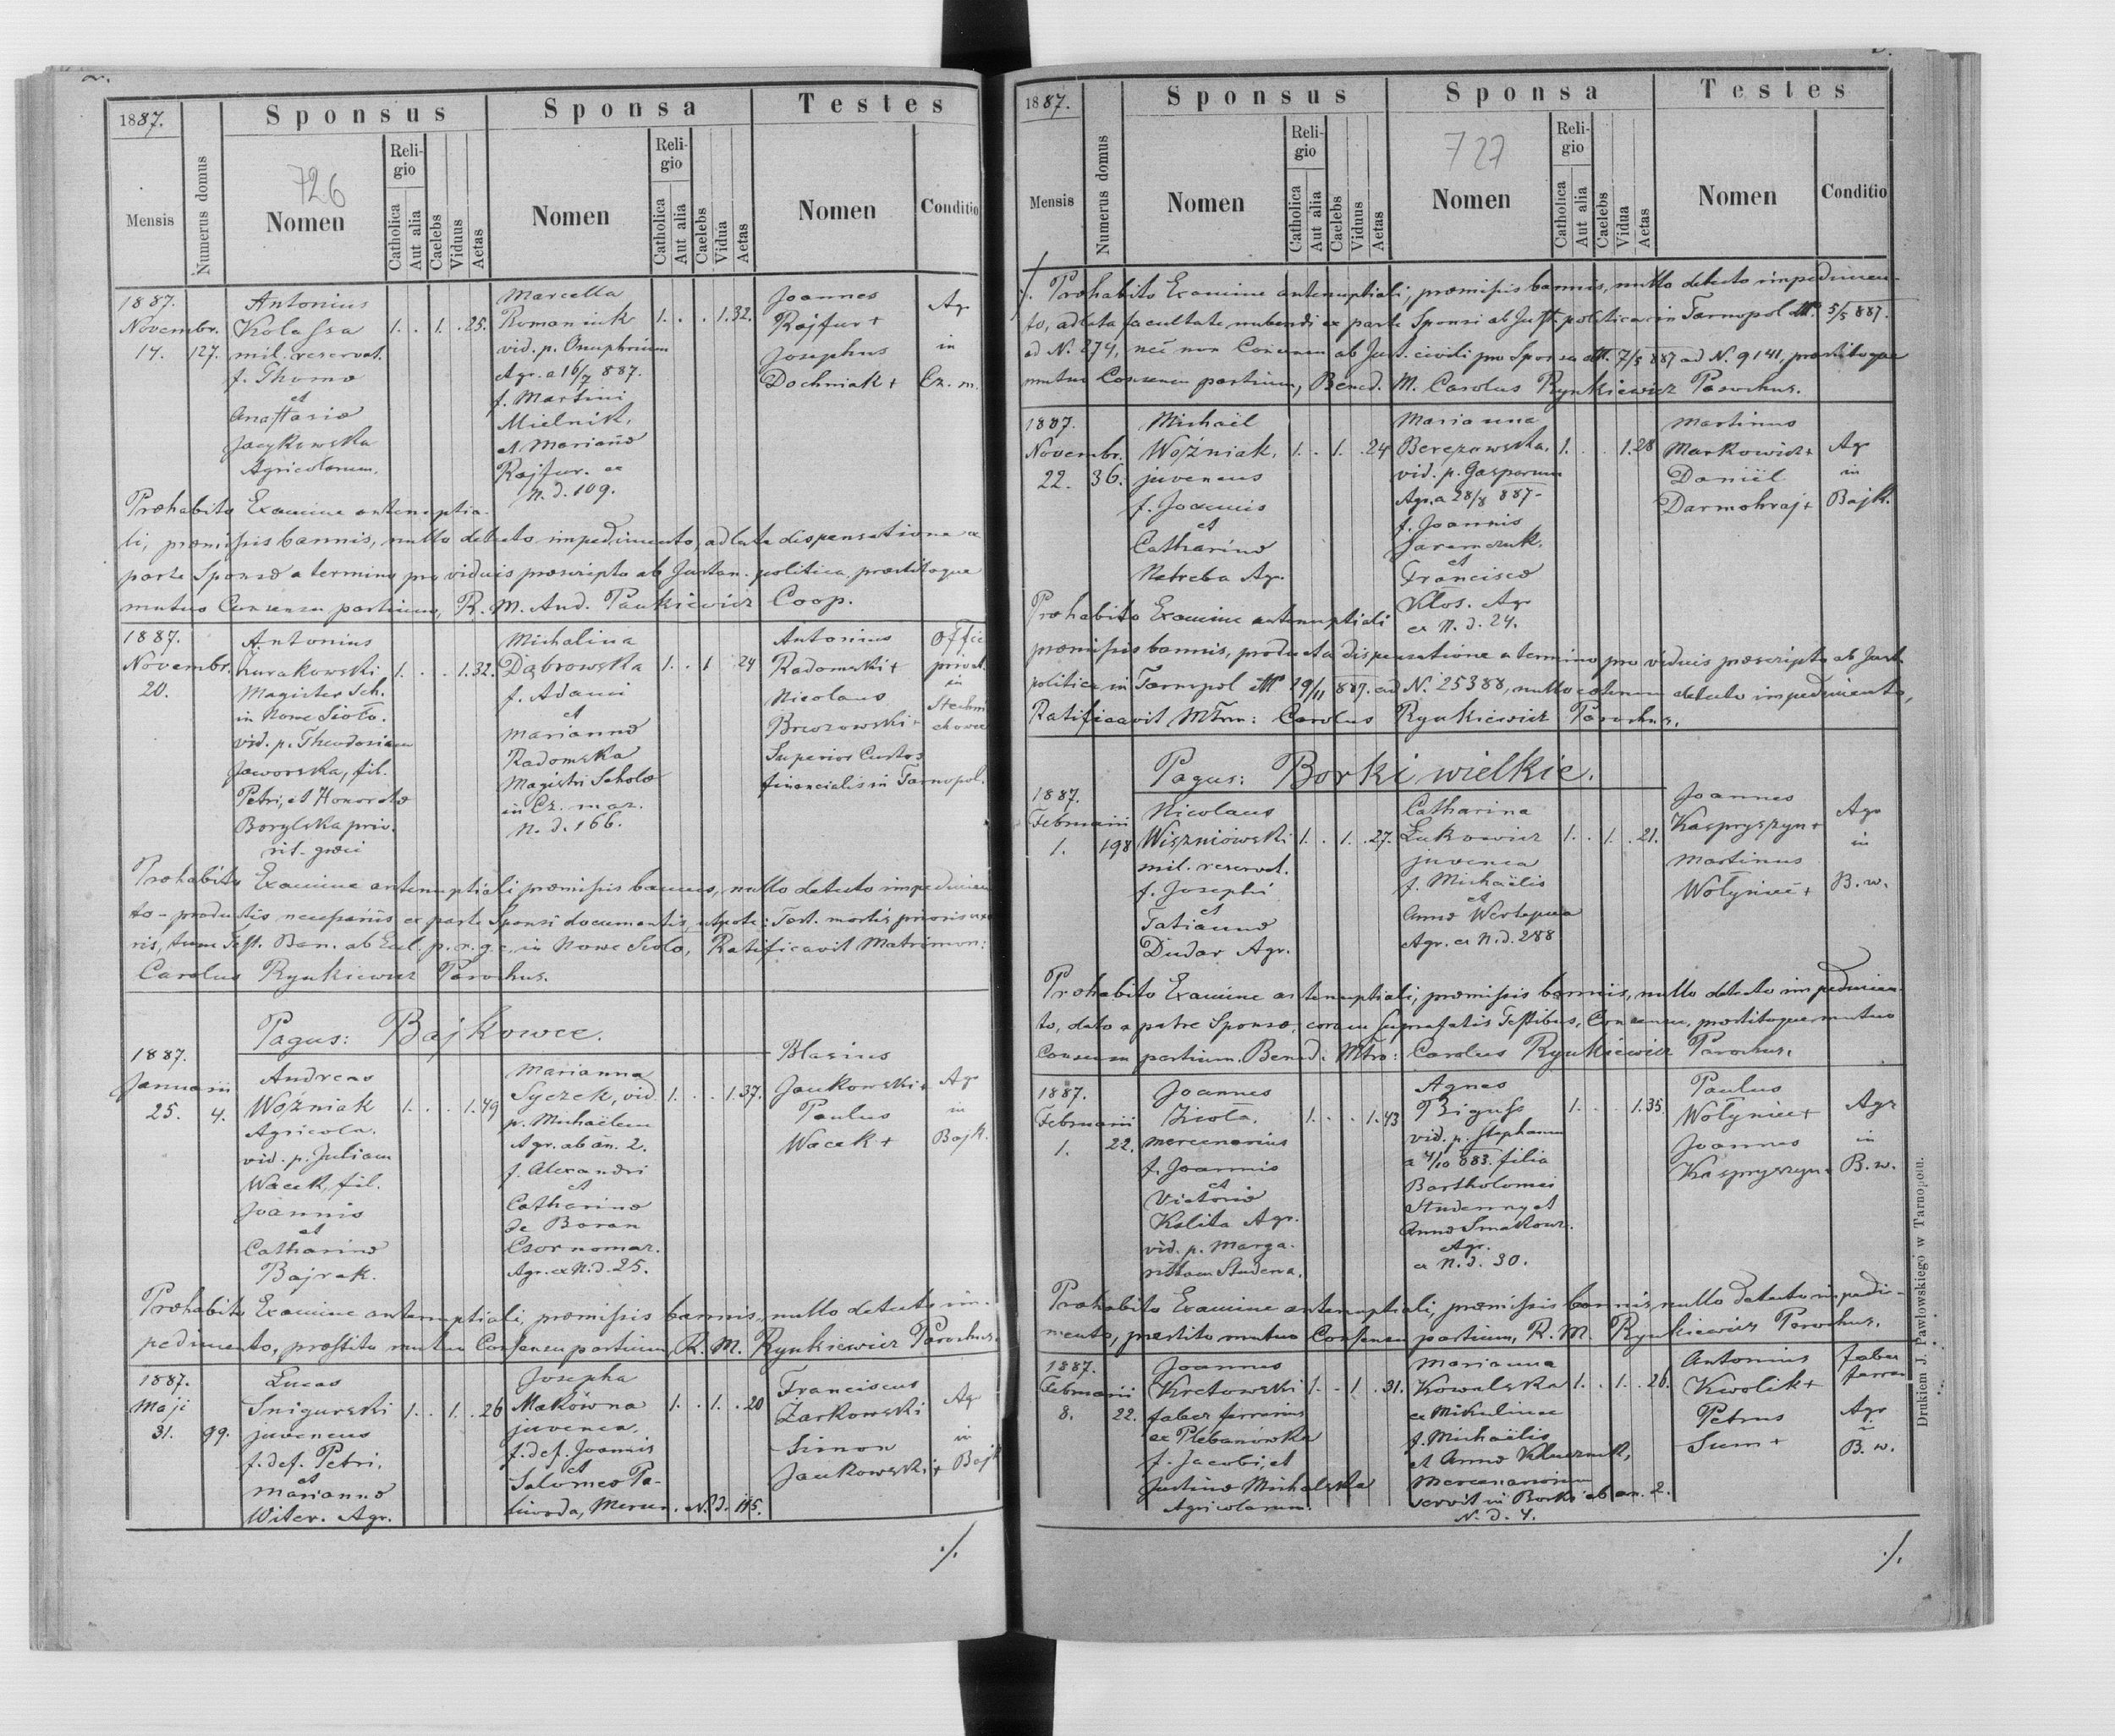 2.
1887.
Sponsus
Sponsa
Testes
Mensis
Numerus domus
726
Nomen
Religio
Catholica
Aut alia
Caelebs
Viduus
Aetas
Nomen
Religio
Catholica
Aut alia
Caelebs
Vidua
Aetas
Nomen
Conditio
1887.
Novembr.
14.
127.
Antonius
Kolassa
mil. reservat.
f. Thomæ
et
Anastasiæ
Jacykowska
Agricolarum.
1. . 1. . 25.
Marcella
Romaniuk
vid. p. Onuphrium
Agr. a 16/7 887.
f. Martini
Mielnik,
et Mariannæ
Rajfur. ex
N. d. 109.
1. . . 1. 32.
Joannes
Rajfur +
Josephus
Dochniak +
Agr
in
Cz. m.
Præhabito Examine antenuptia-
li, præmissis bannis, nullo detecto impedimento, adlata dispensatione ex
parte Sponsæ a termino pro viduis præscripto ab Instan. politica præstitoque
mutuo Consensu partium, R. M. And. Paukiewicz Coop.
1887.
Novembr.
20.
Antonius
Żurakowski
Magister Sch.
in Nowe Sioło.
vid. p. Theodosiam
Jaworska, fil.
Petri, et Honoratæ
Borylska priv.
rit. græci
1. . . 1. 32.
Michalina
Dąbrowska
f. Adami
et
Mariannæ
Radomska
Magistri Scholæ
in Cz. maz.
N. d. 166.
1. . 1 24
Antonius
Radomski +
Nicolaus
Brzozowski +
Superior Custos
financialis in Tarnopol.
Offic
privat.
in
Præhabito Examine antenuptiali præmissis bannis, nullo detecto impedimen
to - productis necessariis ex parte Sponsi documentis, utpote: Test. mortis prioris uxo
ris, tum Test. Ban. ab Eccl. p. r. g. c. in Nowe Sioło, Ratificavit Matrimon:
Carolus Rynkiewicz Parochus.
Pagus: Bajkowce.
1887.
Januarii
25.
4.
Andreas
Woźniak
Agricola.
vid. p. Juliam
Wacek, fil.
Joannis
et
Catharinæ
Bajrak.
1. . . 1. 49
Marianna
Syczek, vid.
p. Michaëlem
Agr. ab an. 2.
f. Alexandri
et
Catharinæ
de Baran
Czornomaz.
Agr. ex N. d. 25.
1. . . 1. 37.
Blasius
Jankowski +
Paulus
Wacek +
Agr
in
Bajk.
Præhabito Examine antenuptiali, præmissis bannis, nullo detecto im-
pedimento, præstito mutuo Consensu partium, R. M. Rynkiewicz Parochus.
1887.
Maji
31.
99.
Lucas
Snigurski
juvencus
f. def. Petri,
et
Mariannæ
Witer. Agr.
1. . 1. . 26
Josepha
Makówna
juvenca,
f. def. Joannis
et
Salomeæ Pa-
liwoda, Mercen. N. d. 115.
1. . 1. . 20
Franciscus
Żarkowski
Simon
Jankowski +
Agr
in
Bajk
./.
1887.
Sponsus
Sponsa
Testes
Mensis
Numerus domus
Nomen
Religio
Catholica
Aut alia
Caelebs
Viduus
Aetas
727
Nomen
Religio
Catholica
Aut alia
Caelebs
Vidua
Aetas
Nomen
Conditio
./. Præhabito Examine antenuptiali, præmissis bannis, nullo detecto impedimen-
to, adlata facultate nubendi ex parte Sponsi ab Inst. politica in Tarnopol ddto 5/5 887.
ad N. 274, nec non Consensu ab Inst. civili pro Sponsa ddto. 7/5 887 ad N. 9141, præstitoque
mutuo Consensu partium, Bened. M. Carolus Rynkiewicz Parochus.
1887
Novembr.
22.
36.
Michaël
Woźniak,
juvencus
f. Joannis
et
Catharinæ
Netreba Agr.
1. . 1. . 24
Marianna
Berezowska.
vid. p. Gasparum
Agr. a 28/8 887-
f. Joannis
Jaremczuk.
et
Franciscæ
Klos. Agr
ex N. d. 24.
1. . . 1. 28
Martinus
Markowicz +
Daniël
Darmohraj +
Agr
in
Bajk.
Præhabito Examine antenuptiali
præmissis bannis, producta dispensatione a termino pro viduis præscripto ab Inst.
politica in Tarnopol ddto 19/11 887. ad N. 25388, nullo detecto impedimento,
Ratificavit Mtrm: Carolus Rynkiewicz Parochus.
Pagus: Borki wielkie.
1887.
Februarii
1.
198
Nicolaus
Wiszniowski
mil. reservat.
f. Josephi
et
Tatiannæ
Dudar Agr.
1. . 1. . 27.
Catharina
Łukowicz
juvenca
f. Michaëlis
et
Annæ Wertepna
Agr. ex N. d. 288
1. . 1. . 21.
Joannes
Kaspryszyn +
Martinus
Wołyniec +
Agr
in
B. w.
Præhabito Examine antenuptiali, præmissis bannis, nullo detecto impedimen-
to, dato a patre Sponsæ, coram suprafatis Testibus, Consensu, præstitoque mutuo
Consensu partium. Bened: Mtro: Carolus Rynkiewicz Parochus.
1887.
Februarii
1.
22.
Joannes
Zioła,
mercenarius
f. Joannis
et
Victoriæ
Kalita Agr.
vid. p. Marga-
ritam Studenna.
1. . . 1. 43
Agnes
Biguss
vid. p. Stephanum
a 4/10 883. filia
Bartholomei
Studenny et
Annæ Smakouz.
Agr.
ex N. d. 30.
1. . . 1. 35.
Paulus
Wołyniec +
Joannes
Kaspryszyn +
Agr
in
B. w.
Præhabito Examine antenuptiali, præmissis bannis nullo detecto impedi-
mento, præstito mutuo Consensu partium, R. M. Rynkiewicz Parochus.
1887.
Februarii
8.
22.
Joannes
Kretowski
faber ferrarius
ex Plebanówka
f. Jacobi, et
Justinæ Michalska
Agricolarum.
1. . 1. . 31.
Marianna
Kowalska
ex Mikulince
f. Michaëlis
et Annæ Klucznik,
Mercenariorum
servit in Borki ab an. 2.
N. d. 4.
1. . 1. . 26.
Antonius
Kwolik +
Petrus
Sum +
faber
ferrar.
Agr
in
B. w.
./.
Drukiem J. Pawłowskiego w Tarnopolu.